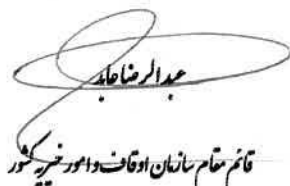 عبدالرضا عابد
قائم مقام سازمان اوقاف و امور خیریه کشور